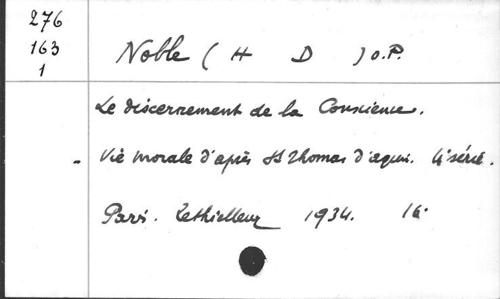 276
163
1
Noble ( H D ) O.P.
Le discernement de la Conscience.
- Vie morale d'après St Thomas d'Aquin. 4e série.
Paris. Lethielleux 1934. 16°